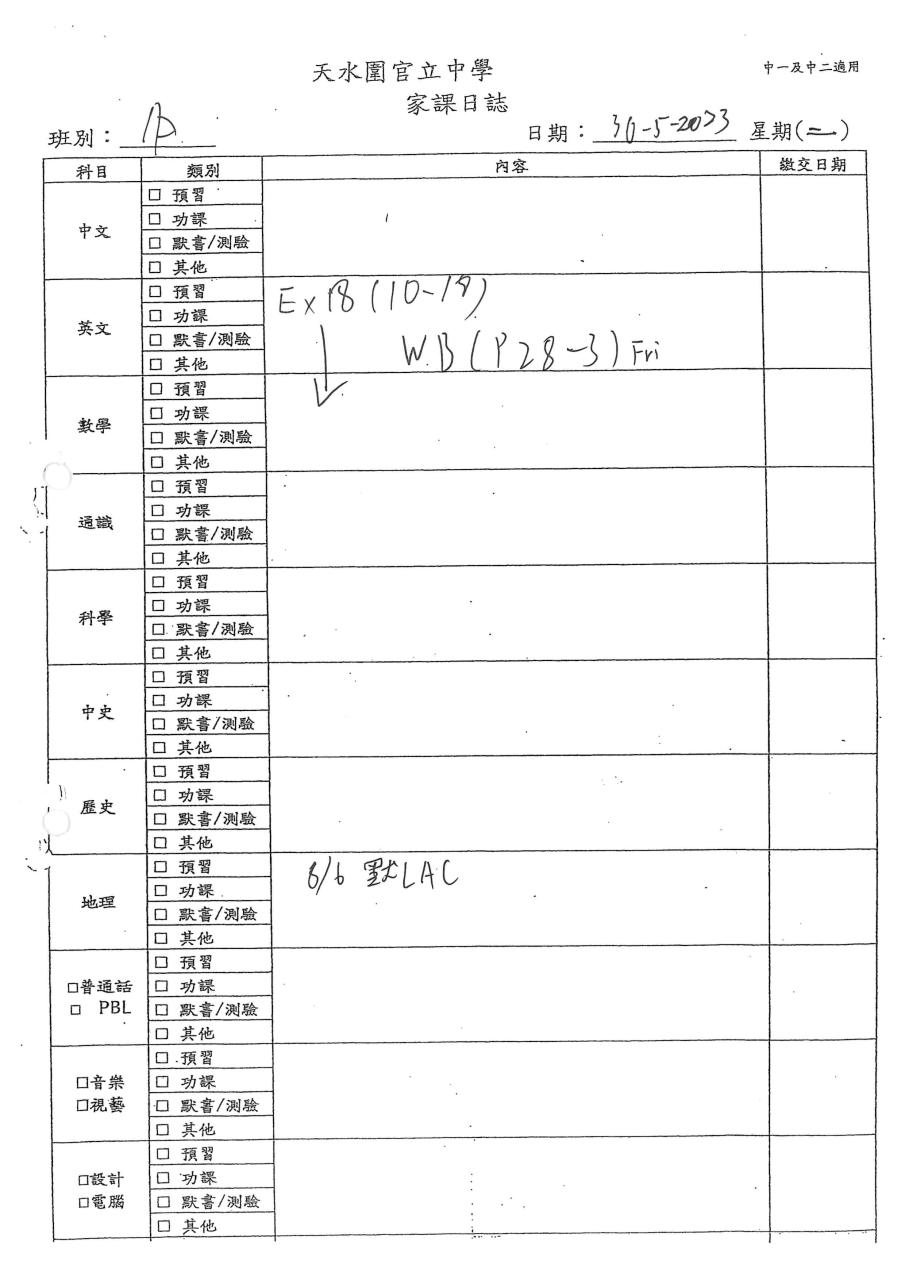 天水圍官立中學
中一及中二適用
家課日誌
班別： 1D 日期： 30-5-2023 星期(二)
科目 類別 內容 繳交日期
中文
□ 預習
□ 功課
□ 默書/測驗
□ 其他
英文
□ 預習
□ 功課
□ 默書/測驗
□ 其他
Ex 18 (10-19)
W.B (P28-3) Fri
數學
□ 預習
□ 功課
□ 默書/測驗
□ 其他
通識
□ 預習
□ 功課
□ 默書/測驗
□ 其他
科學
□ 預習
□ 功課
□ 默書/測驗
□ 其他
中史
□ 預習
□ 功課
□ 默書/測驗
□ 其他
歷史
□ 預習
□ 功課
□ 默書/測驗
□ 其他
地理
□ 預習
□ 功課
□ 默書/測驗
□ 其他
6/6 默LAC
□普通話
□ PBL
□ 預習
□ 功課
□ 默書/測驗
□ 其他
□音樂
□視藝
□ 預習
□ 功課
□ 默書/測驗
□ 其他
□設計
□電腦
□ 預習
□ 功課
□ 默書/測驗
□ 其他